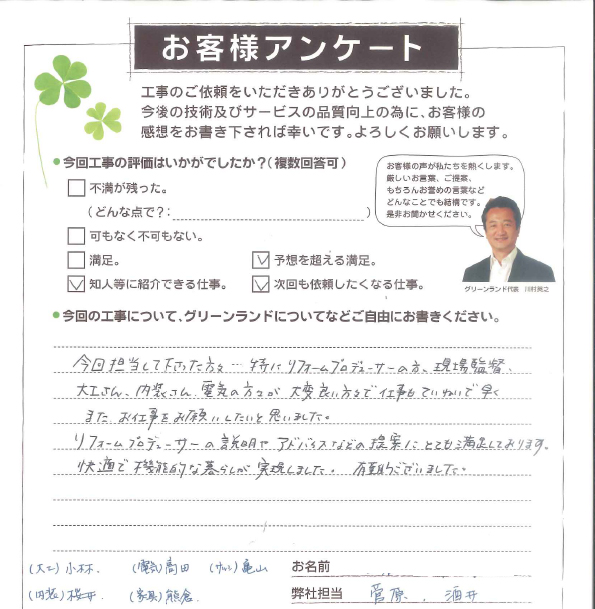 お客様アンケート
工事のご依頼をいただきありがとうございました。
今後の技術及びサービスの品質向上の為に、お客様の
感想をお書き下されば幸いです。よろしくお願いします。
●今回工事の評価はいかがでしたか?(複数回答可)
不満が残った。
(どんな点で?: )
可もなく不可もない。
満足。
予想を超える満足。
知人等に紹介できる仕事。
次回も依頼したくなる仕事。
お客様の声が私たちを熱くします。
厳しいお言葉、ご提案、
もちろんお誉めの言葉など
どんなことでも結構です。
是非お聞かせください。
グリーンランド代表 川村
●今回の工事について、グリーンランドについてなどご自由にお書きください。
今回担当して下さった方々…特にリフォームプロデューサーの方、現場監督、
大工さん、内装さん、電気の方々が大変良い方々で仕事もていねいで早く
また、お仕事をお願いしたいと思いました。
リフォームプロデューサーの説明やアドバイスなどの提案にとても満足しております。
快適で機能的な暮らしが実現しました。有難うございました。
(大工)小林. (電気)高田 亀山
(内装)桜井. (家具)熊倉.
お名前
弊社担当 菅原. 酒井